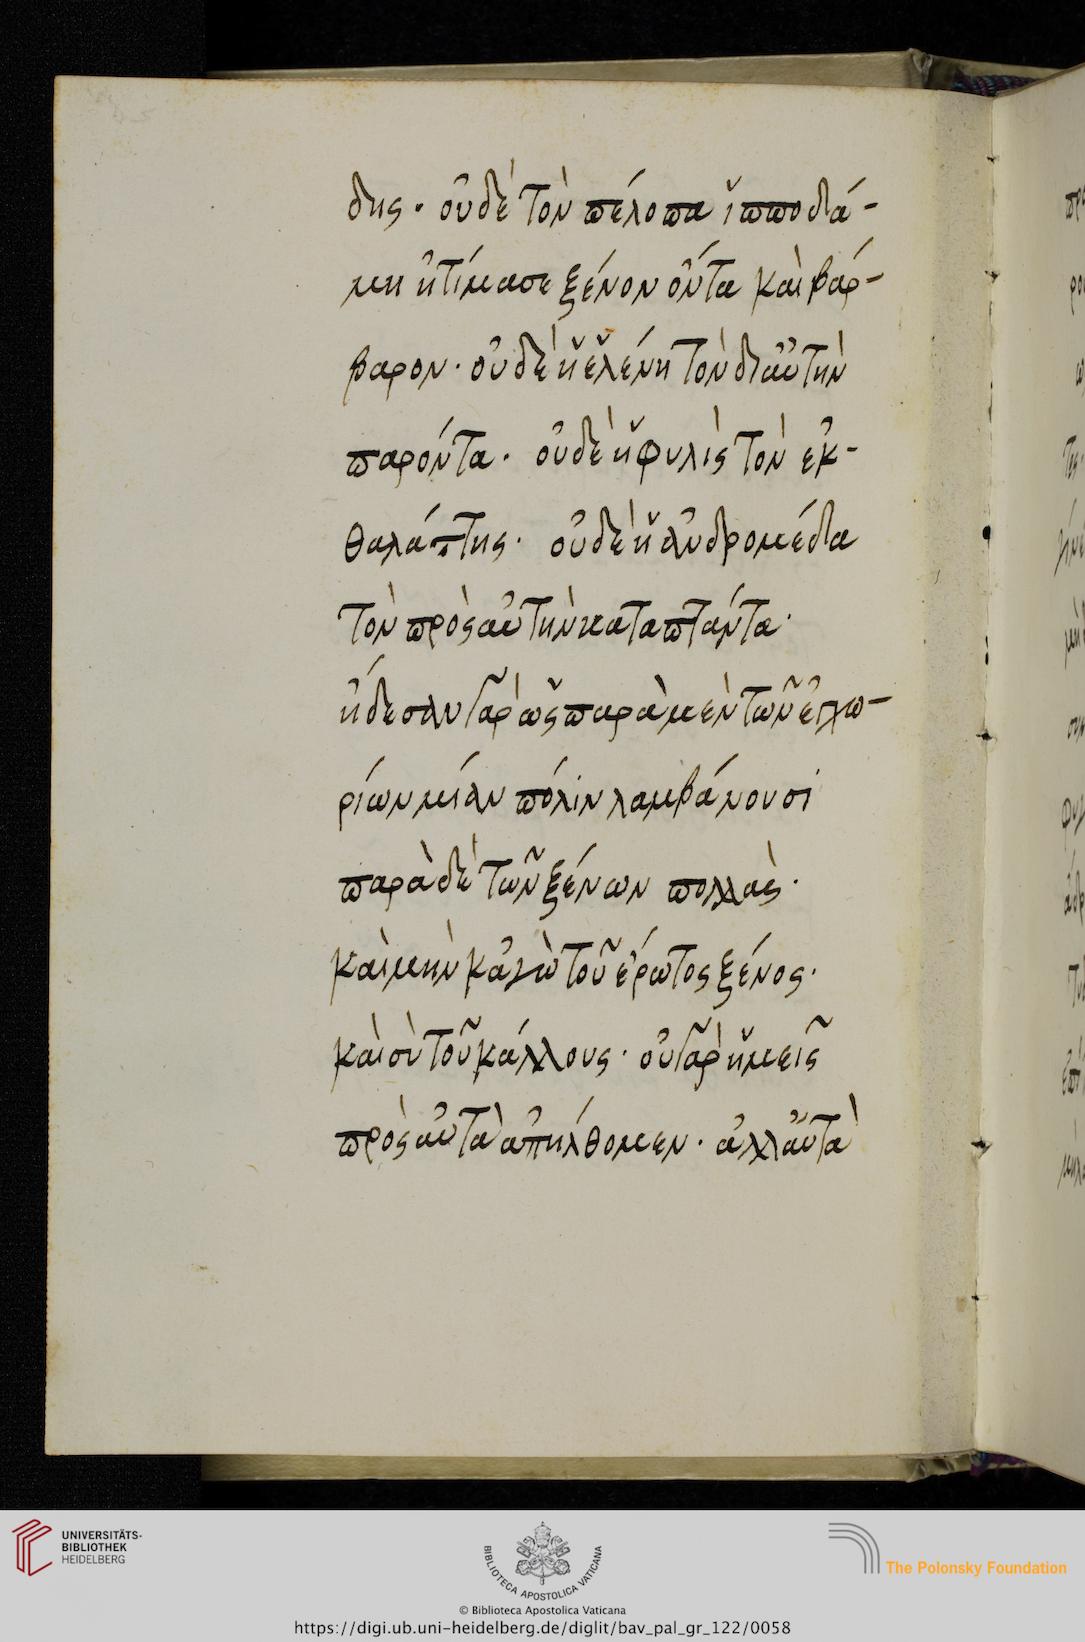 δης· οὐδὲ τὸν πέλοπα ἱπποδά-
μη ἠτίμασε ξένον ὄντα καὶ βάρ-
βαρον· οὐδὲ ἡ ἑλένη τὸν δι αὐτὴν
παρόντα· οὐδὲ ἡ φυλὶς τὸν ἐκ-
θαλάττης· οὐδὲ ἡ ἀνδρομέδα
τὸν πρὸς αὐτὴν καταπτάντα·
ᾔδεσαν γὰρ ὡς παρὰ μὲν τῶν ἐγχω-
ρίων μίαν πόλιν λαμβάνουσι
παρὰ δὲ τῶν ξένων πολλὰς·
καὶ μὴν κἀγὼ τοῦ ἔρωτος ξένος·
καὶ σὺ τοῦ κάλλους· οὐ γὰρ ἡμεῖς
πρὸς αὐτὰ ἀπήλθομεν· ἀλλ αὐτὰ
UNIVERSITÄTS-
BIBLIOTHEK
HEIDELBERG
BIBLIOTECA APOSTOLICA VATICANA
The Polonsky Foundation
© Biblioteca Apostolica Vaticana
https://digi.ub.uni-heidelberg.de/diglit/bav_pal_gr_122/0058